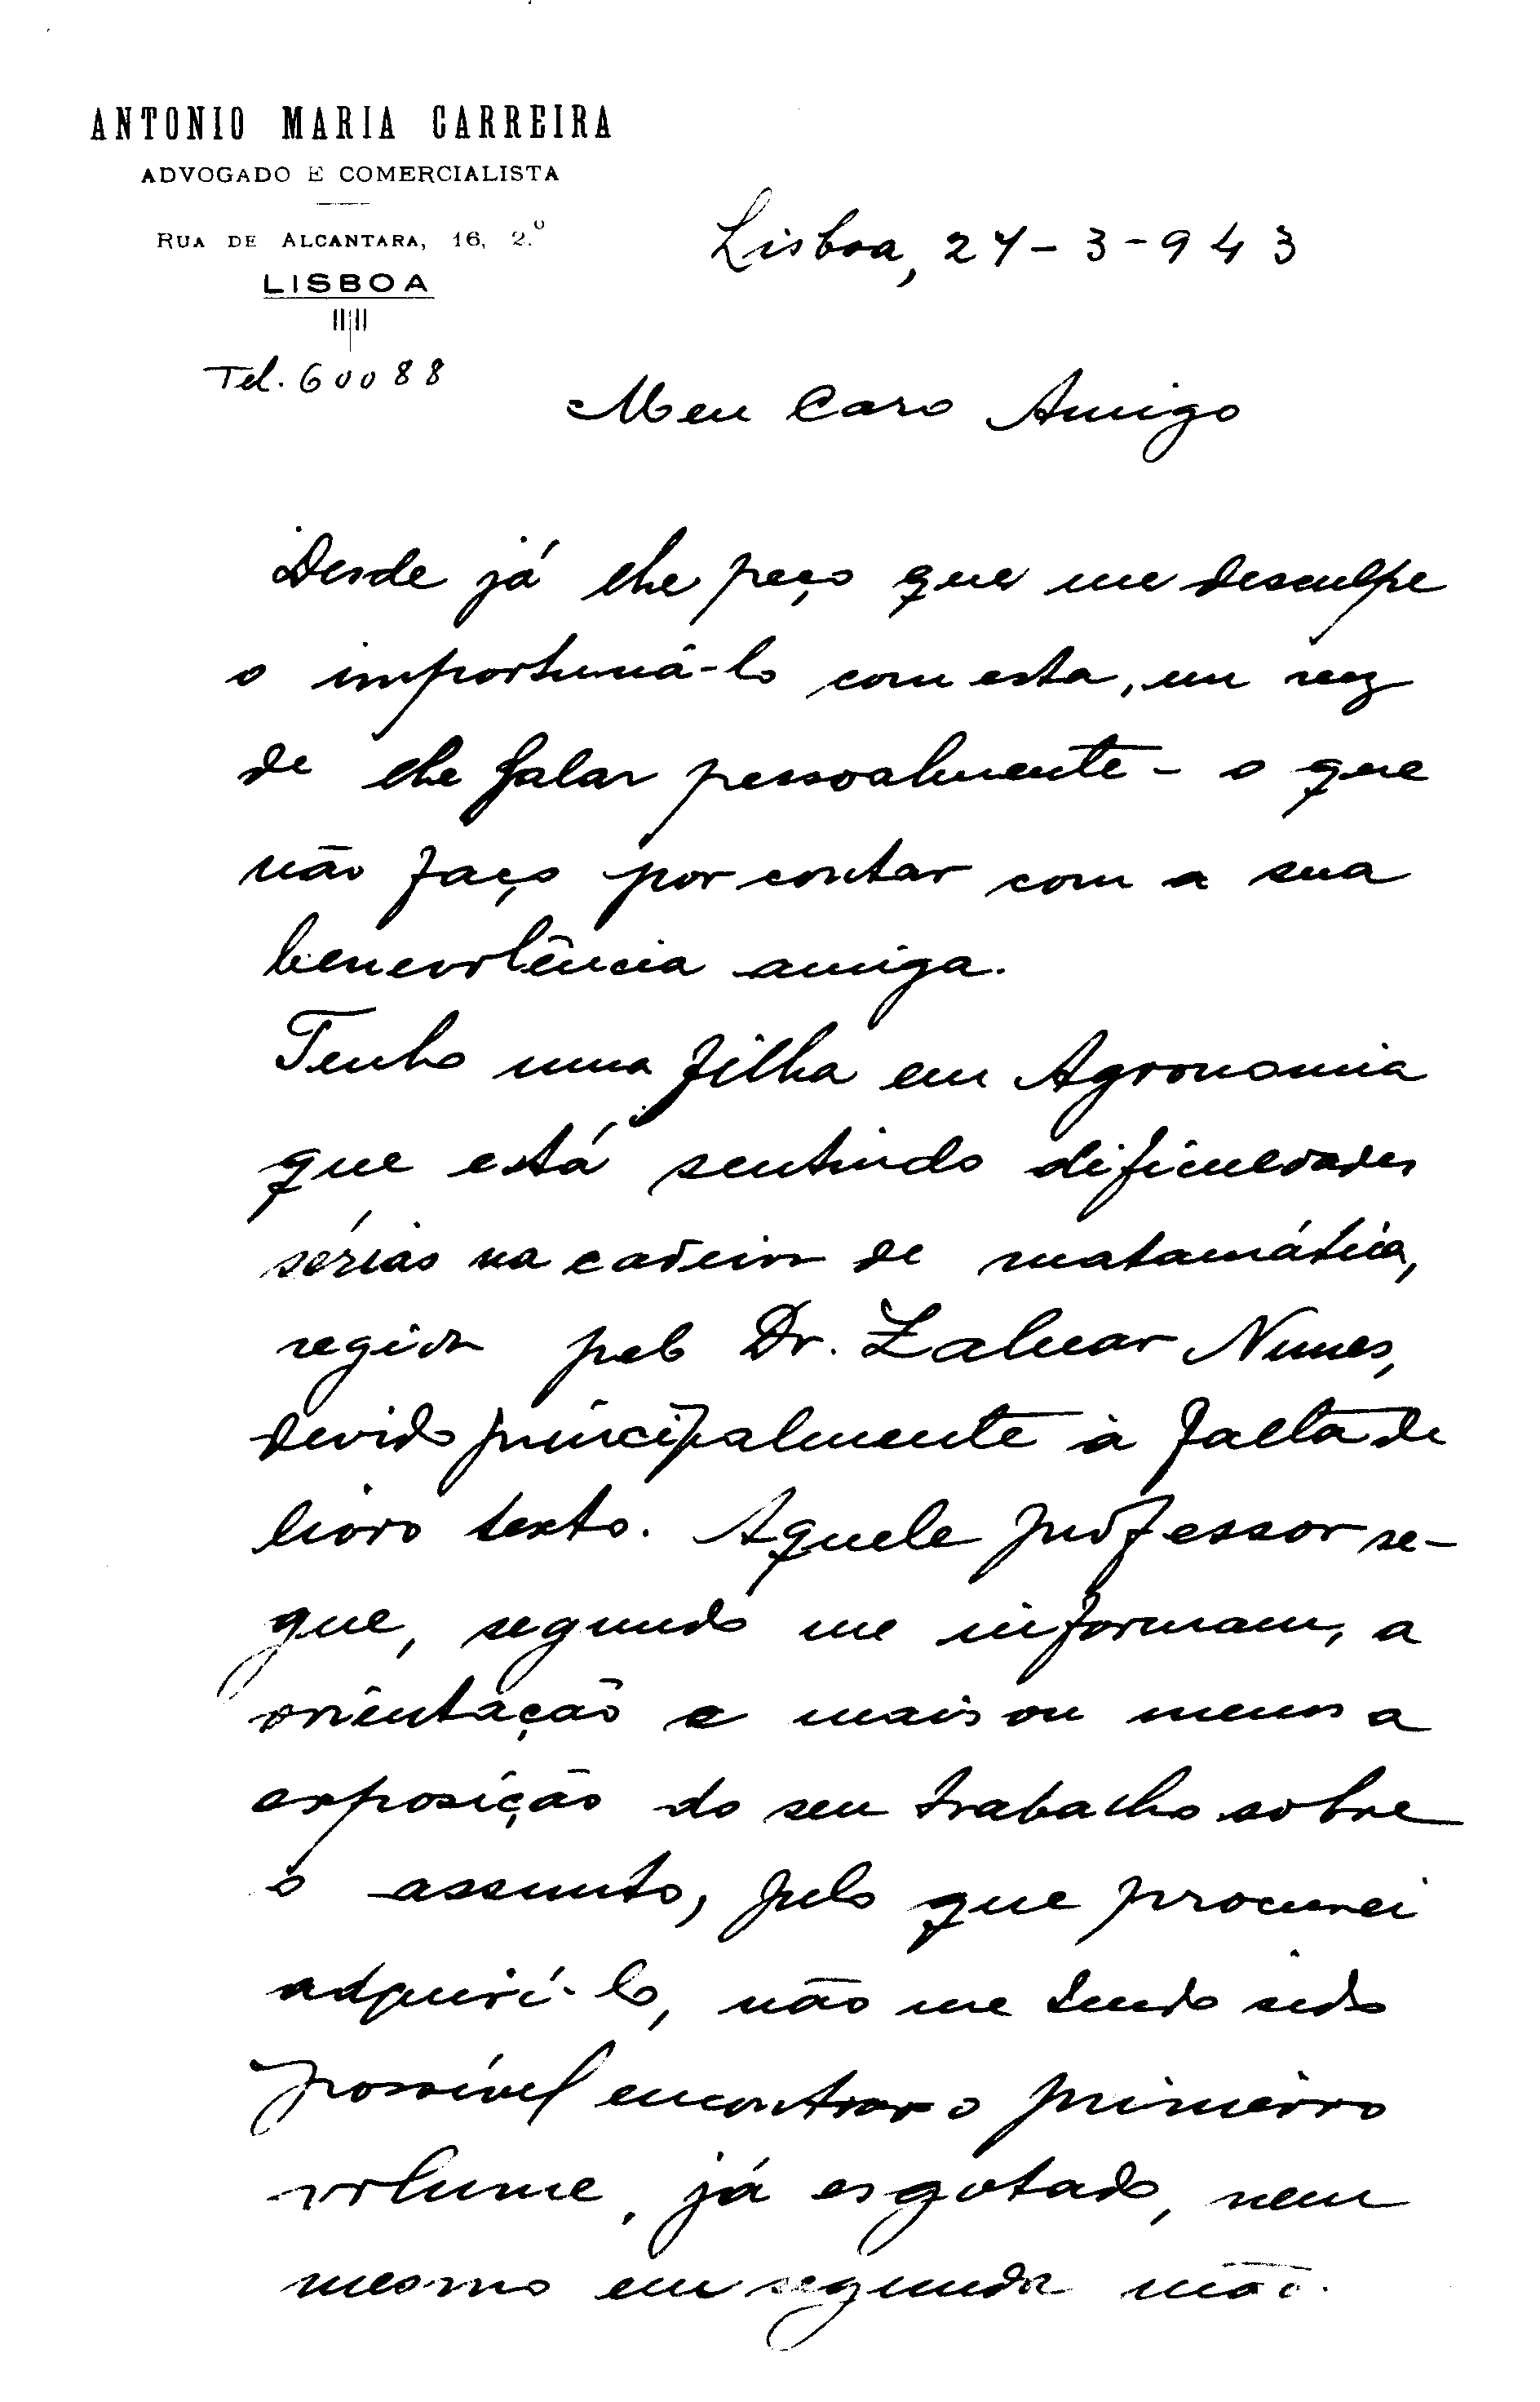 ANTONIO MARIA CARREIRA
ADVOGADO E COMERCIALISTA
RUA DE ALCANTARA, 16, 2.º
LISBOA
Tel. 60088
Lisboa, 27-3-943
Meu Caro Amigo
Desde já lhe peço que me desculpe
o importuná-lo com esta, em vez
de lhe falar pessoalmente - o que
não faço por contar com a sua
benevolência amiga.
Tenho uma filha em Agronomia
que está sentindo dificuldades
sérias na cadeira de matamática,
regida pelo Dr. Zaluar Nunes,
devido principalmente à falta de
livro texto. Aquele professor se-
gue, segundo me informam, a
orientação e mais ou menos a
exposição do seu trabalho sobre
o assunto, pelo que procurei
adquirí-lo, não me tendo sido
possível encontrar o primeiro
volume, já esgotado, nem
mesmo em segunda mão.